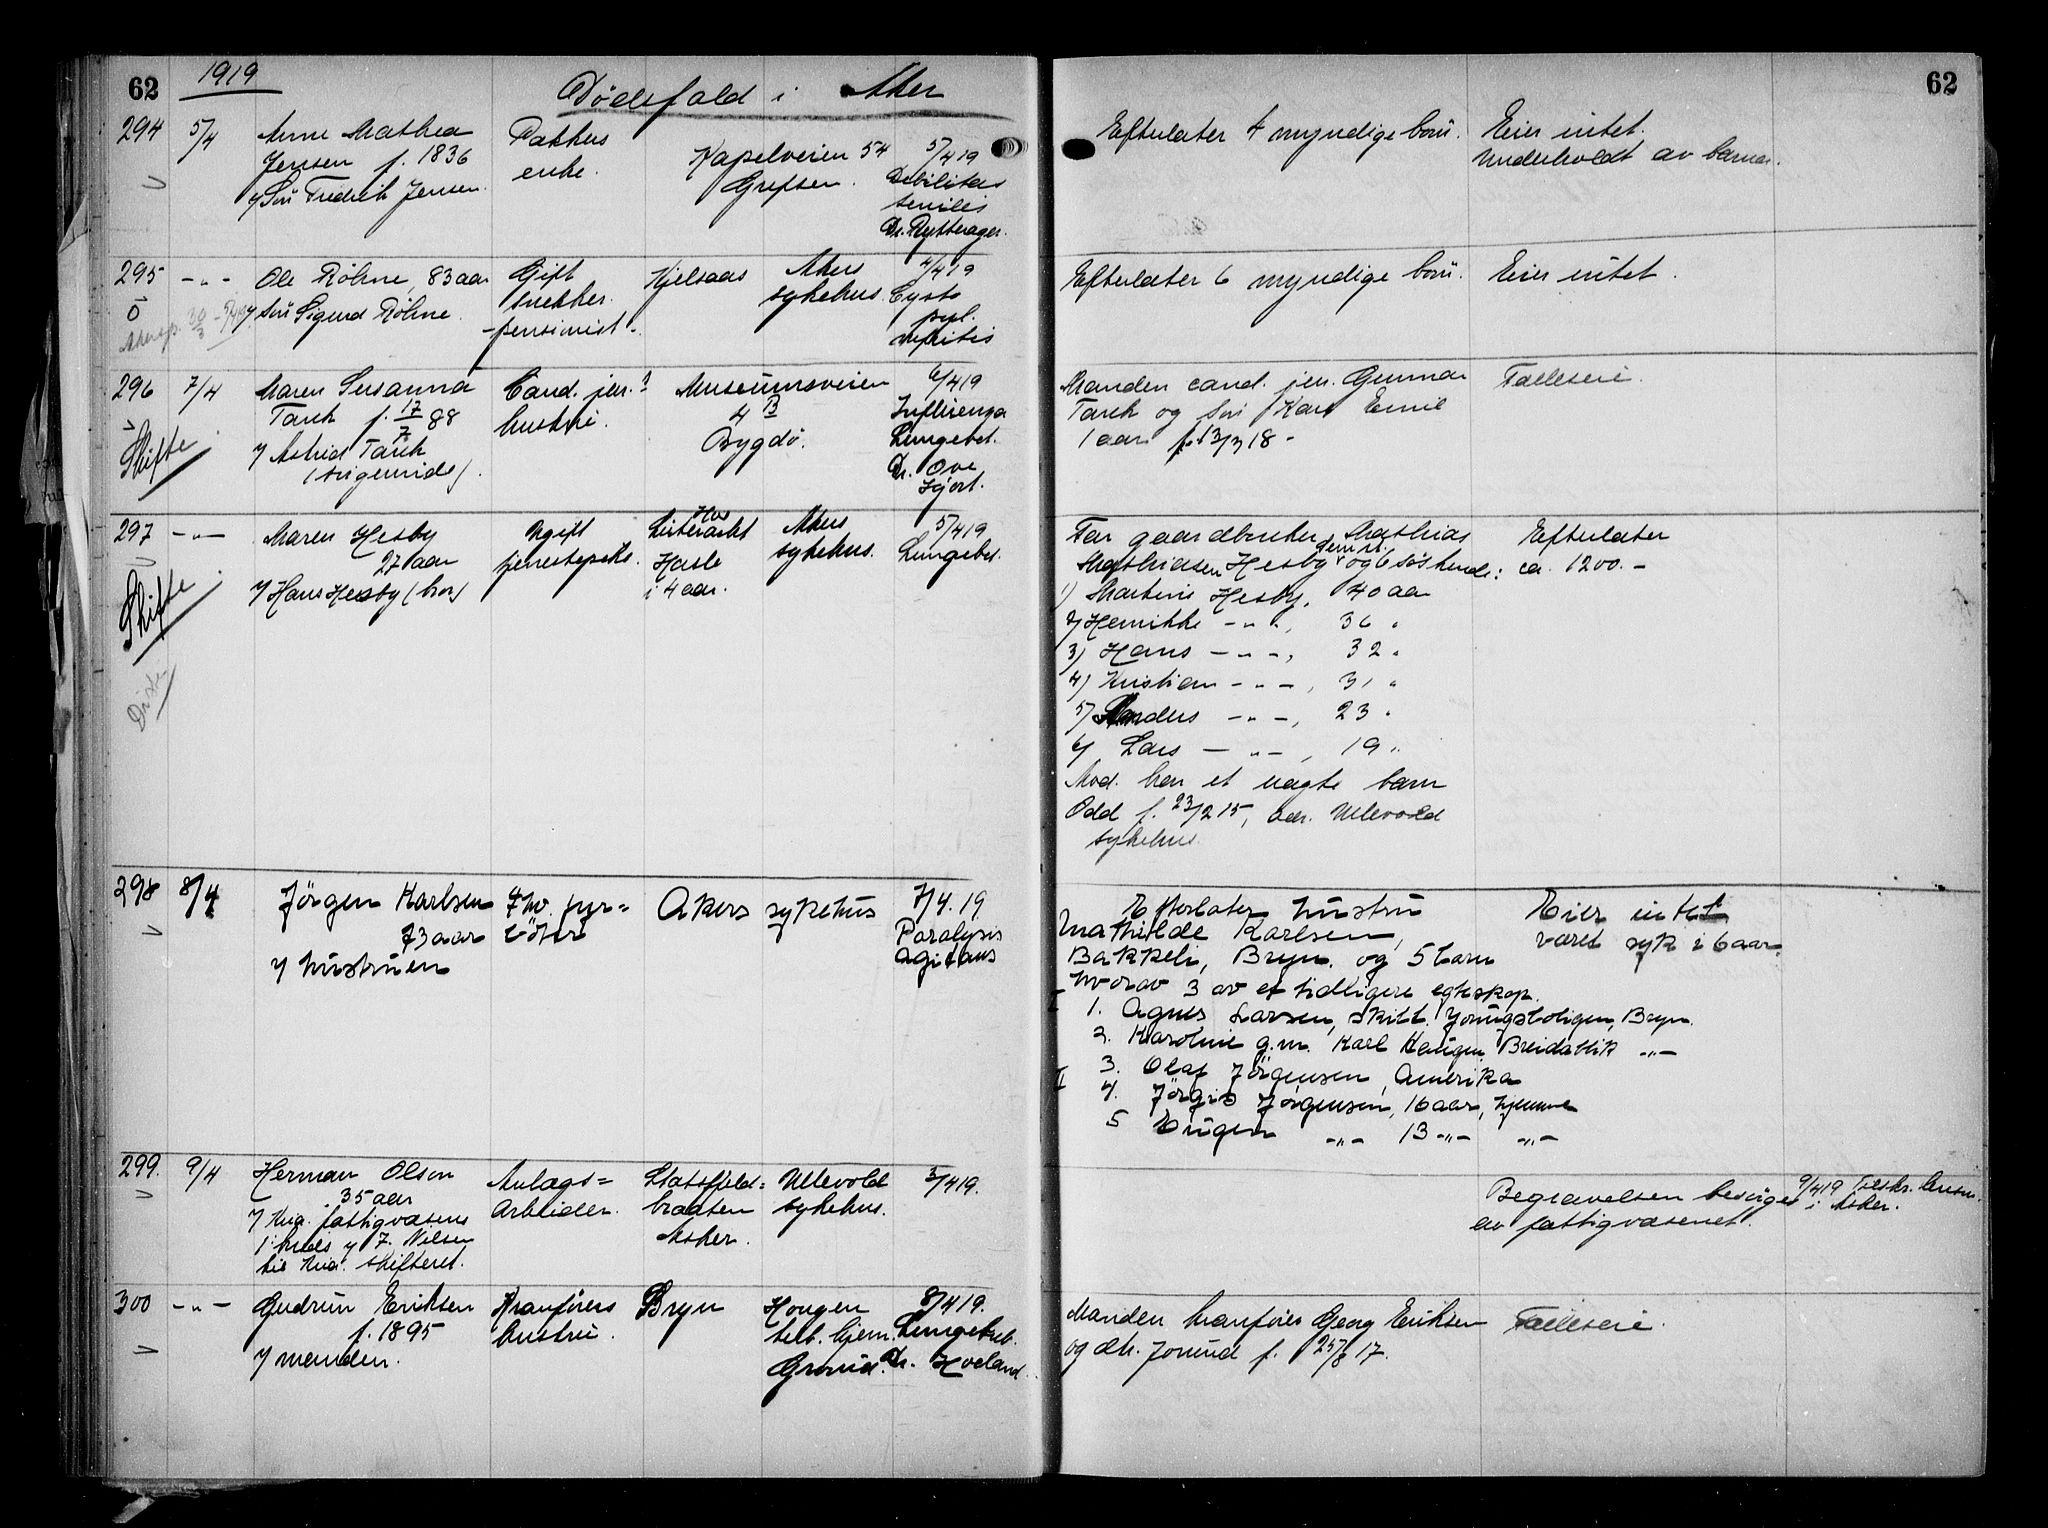 62 1919 Dødsfald i Aker 62
294 5/4 Anne Mathea
Jensen f. 1836
v/ søn Fredrik Jensen.
Pakhus
enke.
Kapelveien 54
Grefsen.
5/4 19
Debilitas
senilis
Dr. Rytterager.
Efterlater 4 myndige børn.
Eier intet.
Underholdt av barna.
295 -"- Ole Röhne, 83 aar
v/ søn Sigurd Röhne.
Gift
snekker.
-pensionist-
Kjelsaas
Akers
sykehus.
4/4 19
Cysto
pyl.
nefritis
Efterlater 6 myndige børn.
Eier intet.
296 7/4 Maren Susanna
Tank f. 17/7 88
v/ Astrid Tank
(svigerinde).
Skifte
Cand. jur.?
hustru.
Museumsveien
4 B
Bygdø.
6/4 19
Influenza
Lungebet.
Dr. Ove
Hjort.
Manden cand. jur. Gunnar
Tank og søn Karl Emil
1 aar f. 13/3 18 -
Fælleseie.
297 -"- Maren Hesby
27 aar
v/ Hans Hesby (bror)
Skifte
Ugift
tjenestepike.
Hos
Hasle
i 4 aar.
Akers
sykehus.
5/4 19
Lungebet.
Far gaardbruker Mathias
Mathiasen Hesby og 6 søskende:
1) Martin Hesby, 40 aar
2) Henrikke -"-, 36 "
3) Hans -"-, 32 "
4) Kristian -"-, 31 "
5) Anders -"-, 23 "
6) Lars -"-, 19 "
Avd. har et uægte barn
Odd f. 23/2 15, adr. Ullevold
sykehus.
Efterlater
ca. 1200.-
298 8/4 Jörgen Karlsen
73 aar
v/ hustruen
Fhv. fyr=
böter
Akers sykehus
7/4.19
Paralysis
agitans
Efterlater hustru
Mathilde Karlsen,
Bakkeli, Bryn. og 5 barn
hvorav 3 av et tidligere egteskap.
I 1. Agnes Larsen, skilt. Youngsboligen, Bryn.
2. Karoline g.m. Karl Haugen Breidablik -"-
3. Olaf Jörgensen, Amerika
II 4. Jörgis Jörgensen, 16 aar, hjemme
5 Eugen -"- 13 -"- -"-
Eier intet
været syk i 6 aar.
299. 9/4 Herman Olson
35 aar
v/ Kria. fattigvæsens
v/ J. Nilsen
til Kria. skifteret.
Anlægs=
Arbeider.
bragten
Asker.
Ullevold
sykehus.
3/4 19.
Begravelsen besörges
av fattigvæsenet.
9/4 19
i Asker.
300 -"- Gudrun Eriksen
f. 1895
v/ manden.
Kranförers
hustru.
Bryn
Haugen
tub. hjem.
Grorud.
8/4 19.
Lungetub.
Dr. Hoeland.
Manden kranförer Georg Eriksen
og dtr. Jorund f. 25/8 17.
Fælleseie.